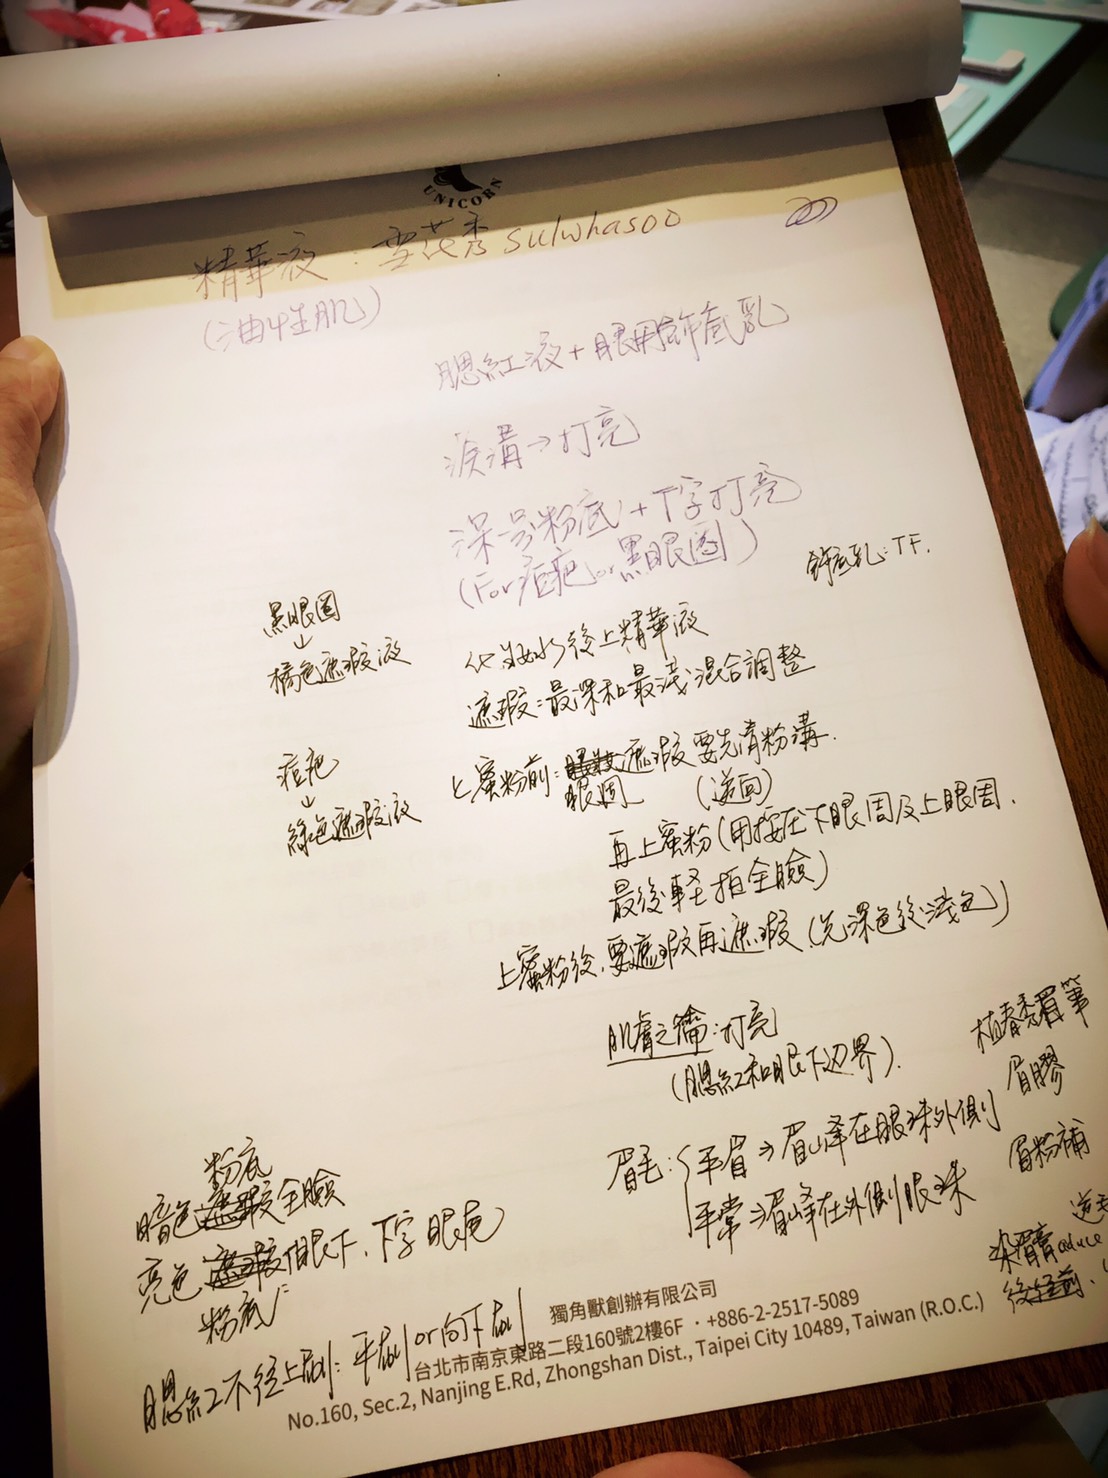 UNICORN
精華液：雪花秀 sulwhasoo
(油性肌)
腮紅液+眼用飾底乳
淚溝→打亮
深号粉底+T字打亮
(For痘疤or黑眼圈)
飾底乳:TF.
黑眼圈
↓
橘色遮瑕液
化妝水後上精華液
遮瑕:最深和最淺混合調整
痘疤
↓
綠色遮瑕液
上蜜粉前:眼周遮瑕要先清粉溝.
(逆向)
再上蜜粉(用按在下眼周及上眼周.
最後輕拍全臉)
上蜜粉後,要遮瑕再遮瑕(先深色後淺色)
肌膚之鑰:打亮
(腮紅和眼下边界).
植春秀眉筆
眉膠
眉粉補
眉毛:平眉→眉峰在眼球外側
平常→眉峰在外側眼球
染眉膏
粉底
暗色全臉
亮色 眼下、T字 眼尾
粉底
腮紅不往上刷:平刷or向下刷
獨角獸創辦有限公司
台北市南京東路二段160號2樓6F ・+886-2-2517-5089
No.160, Sec.2, Nanjing E.Rd, Zhongshan Dist., Taipei City 10489, Taiwan (R.O.C.)